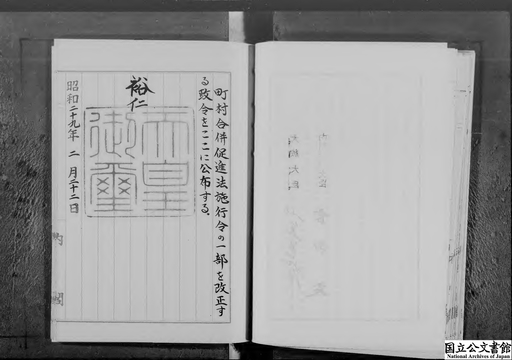 町村合併促進法施行令の一部を改正す
る政令をここに公布する。
裕仁
天皇御璽
昭和二十九年二月二十二日
内閣
国立公文書館
National Archives of Japan